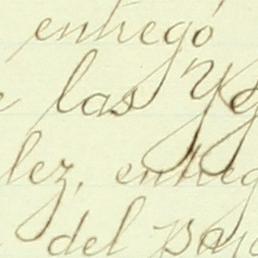 entregó
las
lez, entreg
del